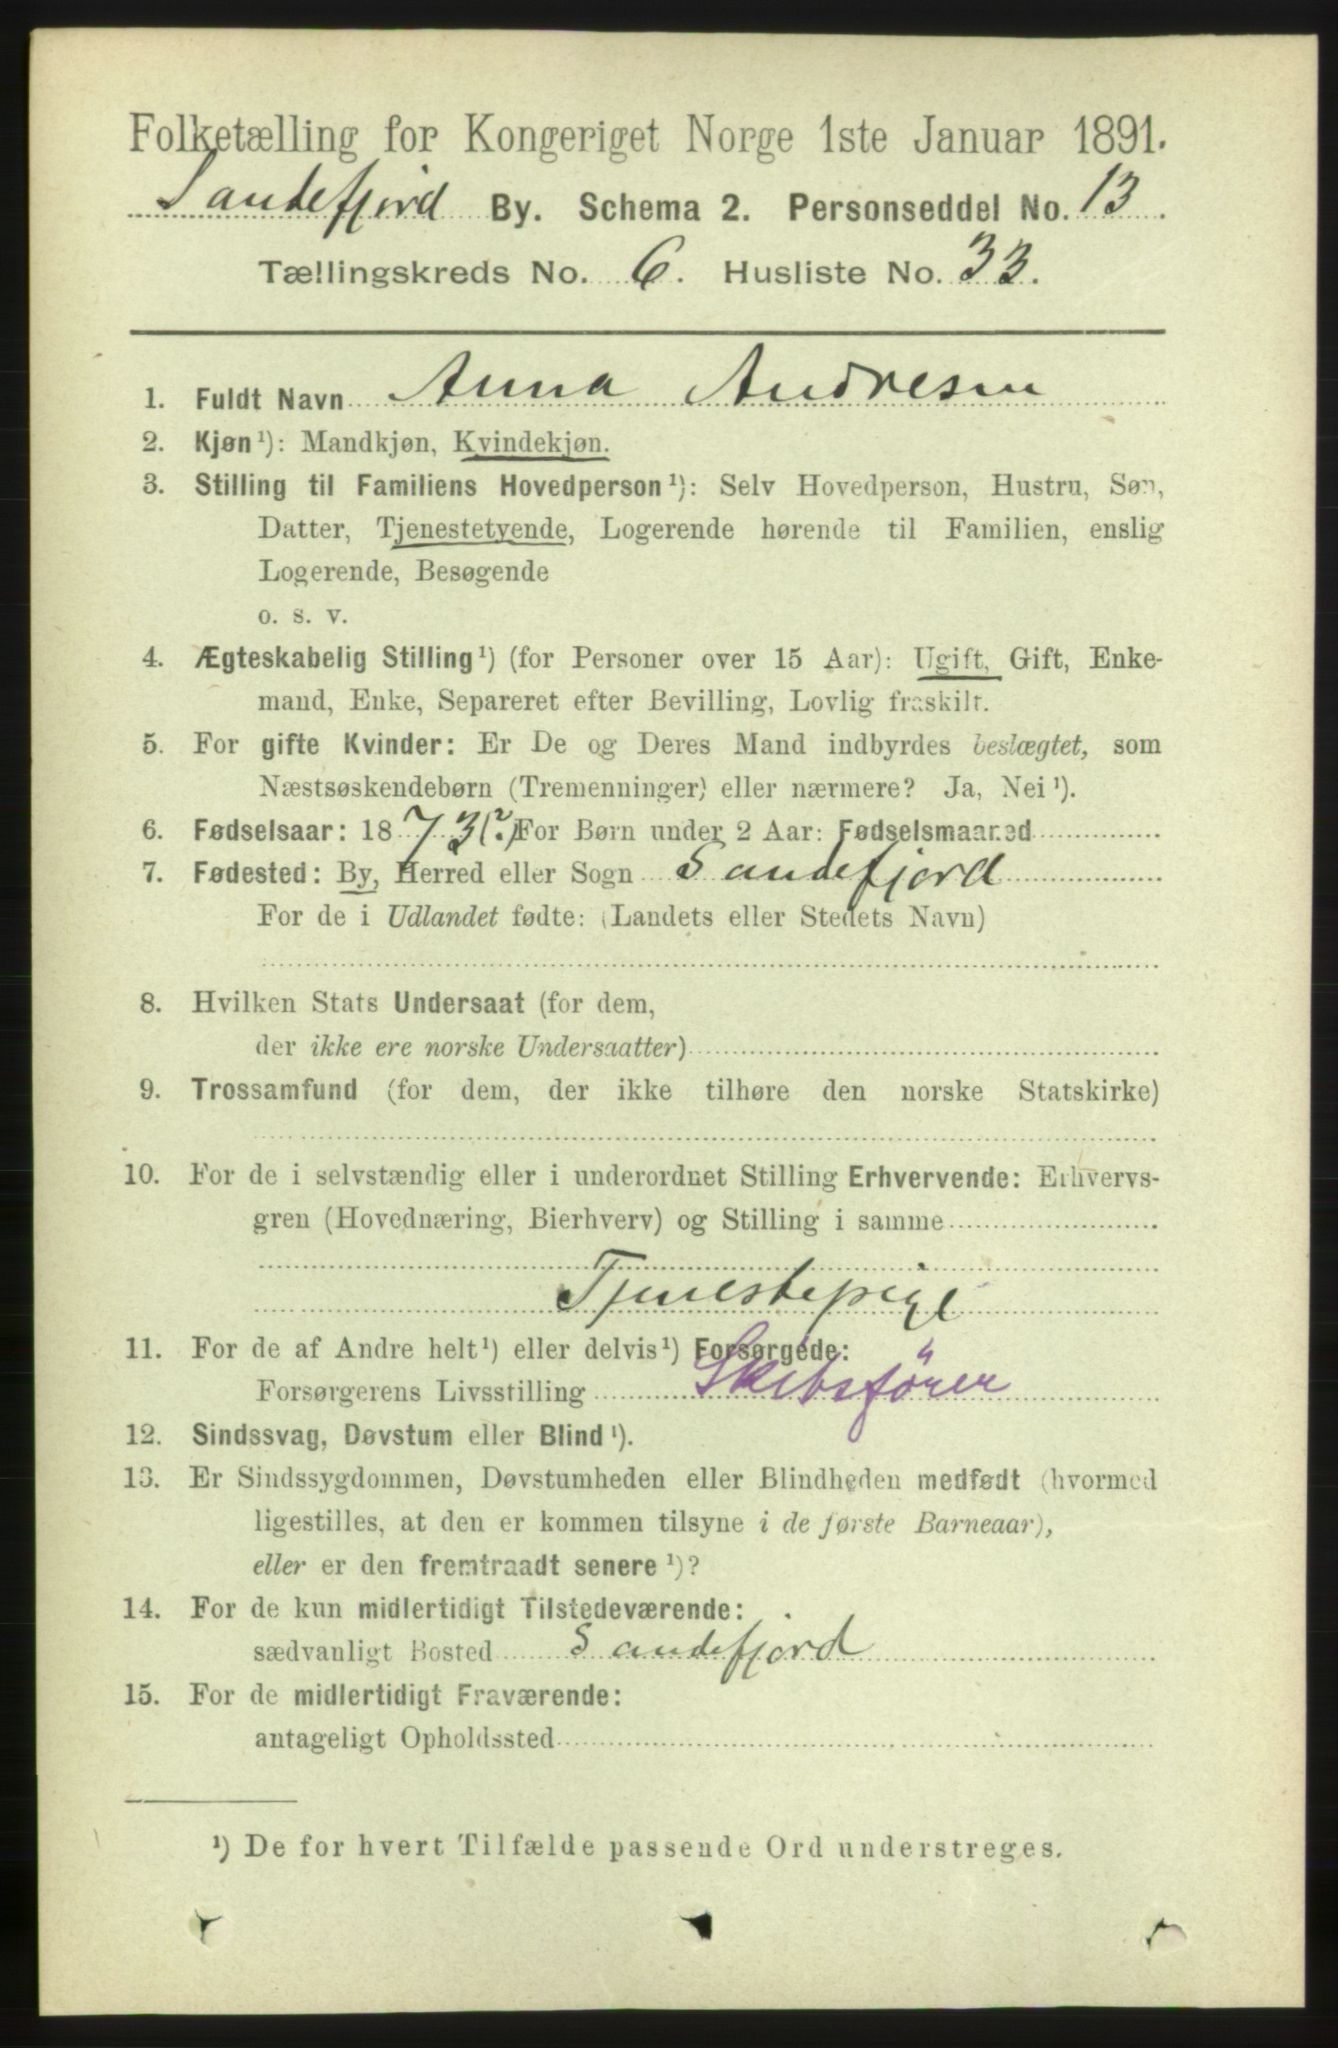 Folketælling for Kongeriget Norge 1ste Januar 1891.
Sandefjord By. Schema 2. Personseddel No. 13.
Tællingskreds No. 6. Husliste No. 33.
1. Fuldt Navn Anna Andresen
2. Kjøn¹): Mandkjøn, Kvindekjøn.
3. Stilling til Familiens Hovedperson¹): Selv Hovedperson, Hustru, Søn,
Datter, Tjenestetyende, Logerende hørende til Familien, enslig
Logerende, Besøgende
o. s. v.
4. Ægteskabelig Stilling¹) (for Personer over 15 Aar): Ugift, Gift, Enke-
mand, Enke, Separeret efter Bevilling, Lovlig fraskilt.
5. For gifte Kvinder: Er De og Deres Mand indbyrdes beslægtet, som
Næstsøskendebørn (Tremenninger) eller nærmere? Ja, Nei¹).
6. Fødselsaar: 1873(?) For Børn under 2 Aar: Fødselsmaaned
7. Fødested: By, Herred eller Sogn Sandefjord
For de i Udlandet fødte: (Landets eller Stedets Navn)
8. Hvilken Stats Undersaat (for dem,
der ikke ere norske Undersaatter)
9. Trossamfund (for dem, der ikke tilhøre den norske Statskirke)
10. For de i selvstændig eller i underordnet Stilling Erhvervende: Erhvervs-
gren (Hovednæring, Bierhverv) og Stilling i samme
Tjenestepige
11. For de af Andre helt¹) eller delvis¹) Forsørgede:
Forsørgerens Livsstilling Skibsfører
12. Sindssvag, Døvstum eller Blind¹).
13. Er Sindssygdommen, Døvstumheden eller Blindheden medfødt (hvormed
ligestilles, at den er kommen tilsyne i de første Barneaar),
eller er den fremtraadt senere¹)?
14. For de kun midlertidigt Tilstedeværende:
sædvanligt Bosted Sandefjord
15. For de midlertidigt Fraværende:
antageligt Opholdssted
¹) De for hvert Tilfælde passende Ord understreges.